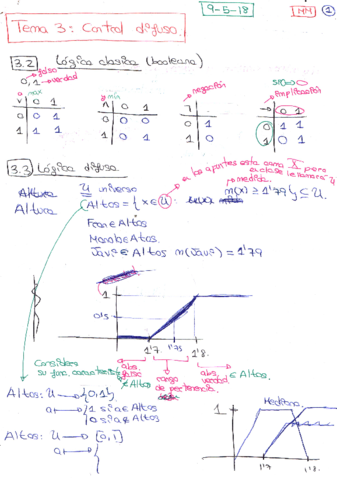 9-5-18 MM 1
Tema 3: Control difuso.
3.2 Lógica clasica (booleana)
0, 1 falso verdad
o max
y min
negación
Implicación
v 0 1
0 0 1
1 1 1
∧ 0 1
0 0 0
1 0 1
¬
0 1
1 0
→ 0 1
0 1 1
1 0 1
3.3 Lógica difusa
en los apuntes esta como X pero
en clase le llamamos U
medida
Altura U universo
Altura Altos = { x ∈ U : m(x) ≥ 1'79 } ⊆ U.
Fran ∈ Altos
Manolo ∈ Altos.
Javi ∈ Altos m(Javi) = 1'79
1
0'5
1'7 1'75 1'8
abs. falso ∈ Altos
cargo de pertenencia
abs. verdad ∈ Altos.
Considera su func. caracteristica
Altos: U → {0,1}
a → 1 si a ∈ Altos
0 si a ∉ Altos
Altos: U → [0,1]
a →
Mediana
1
1'7 1'8